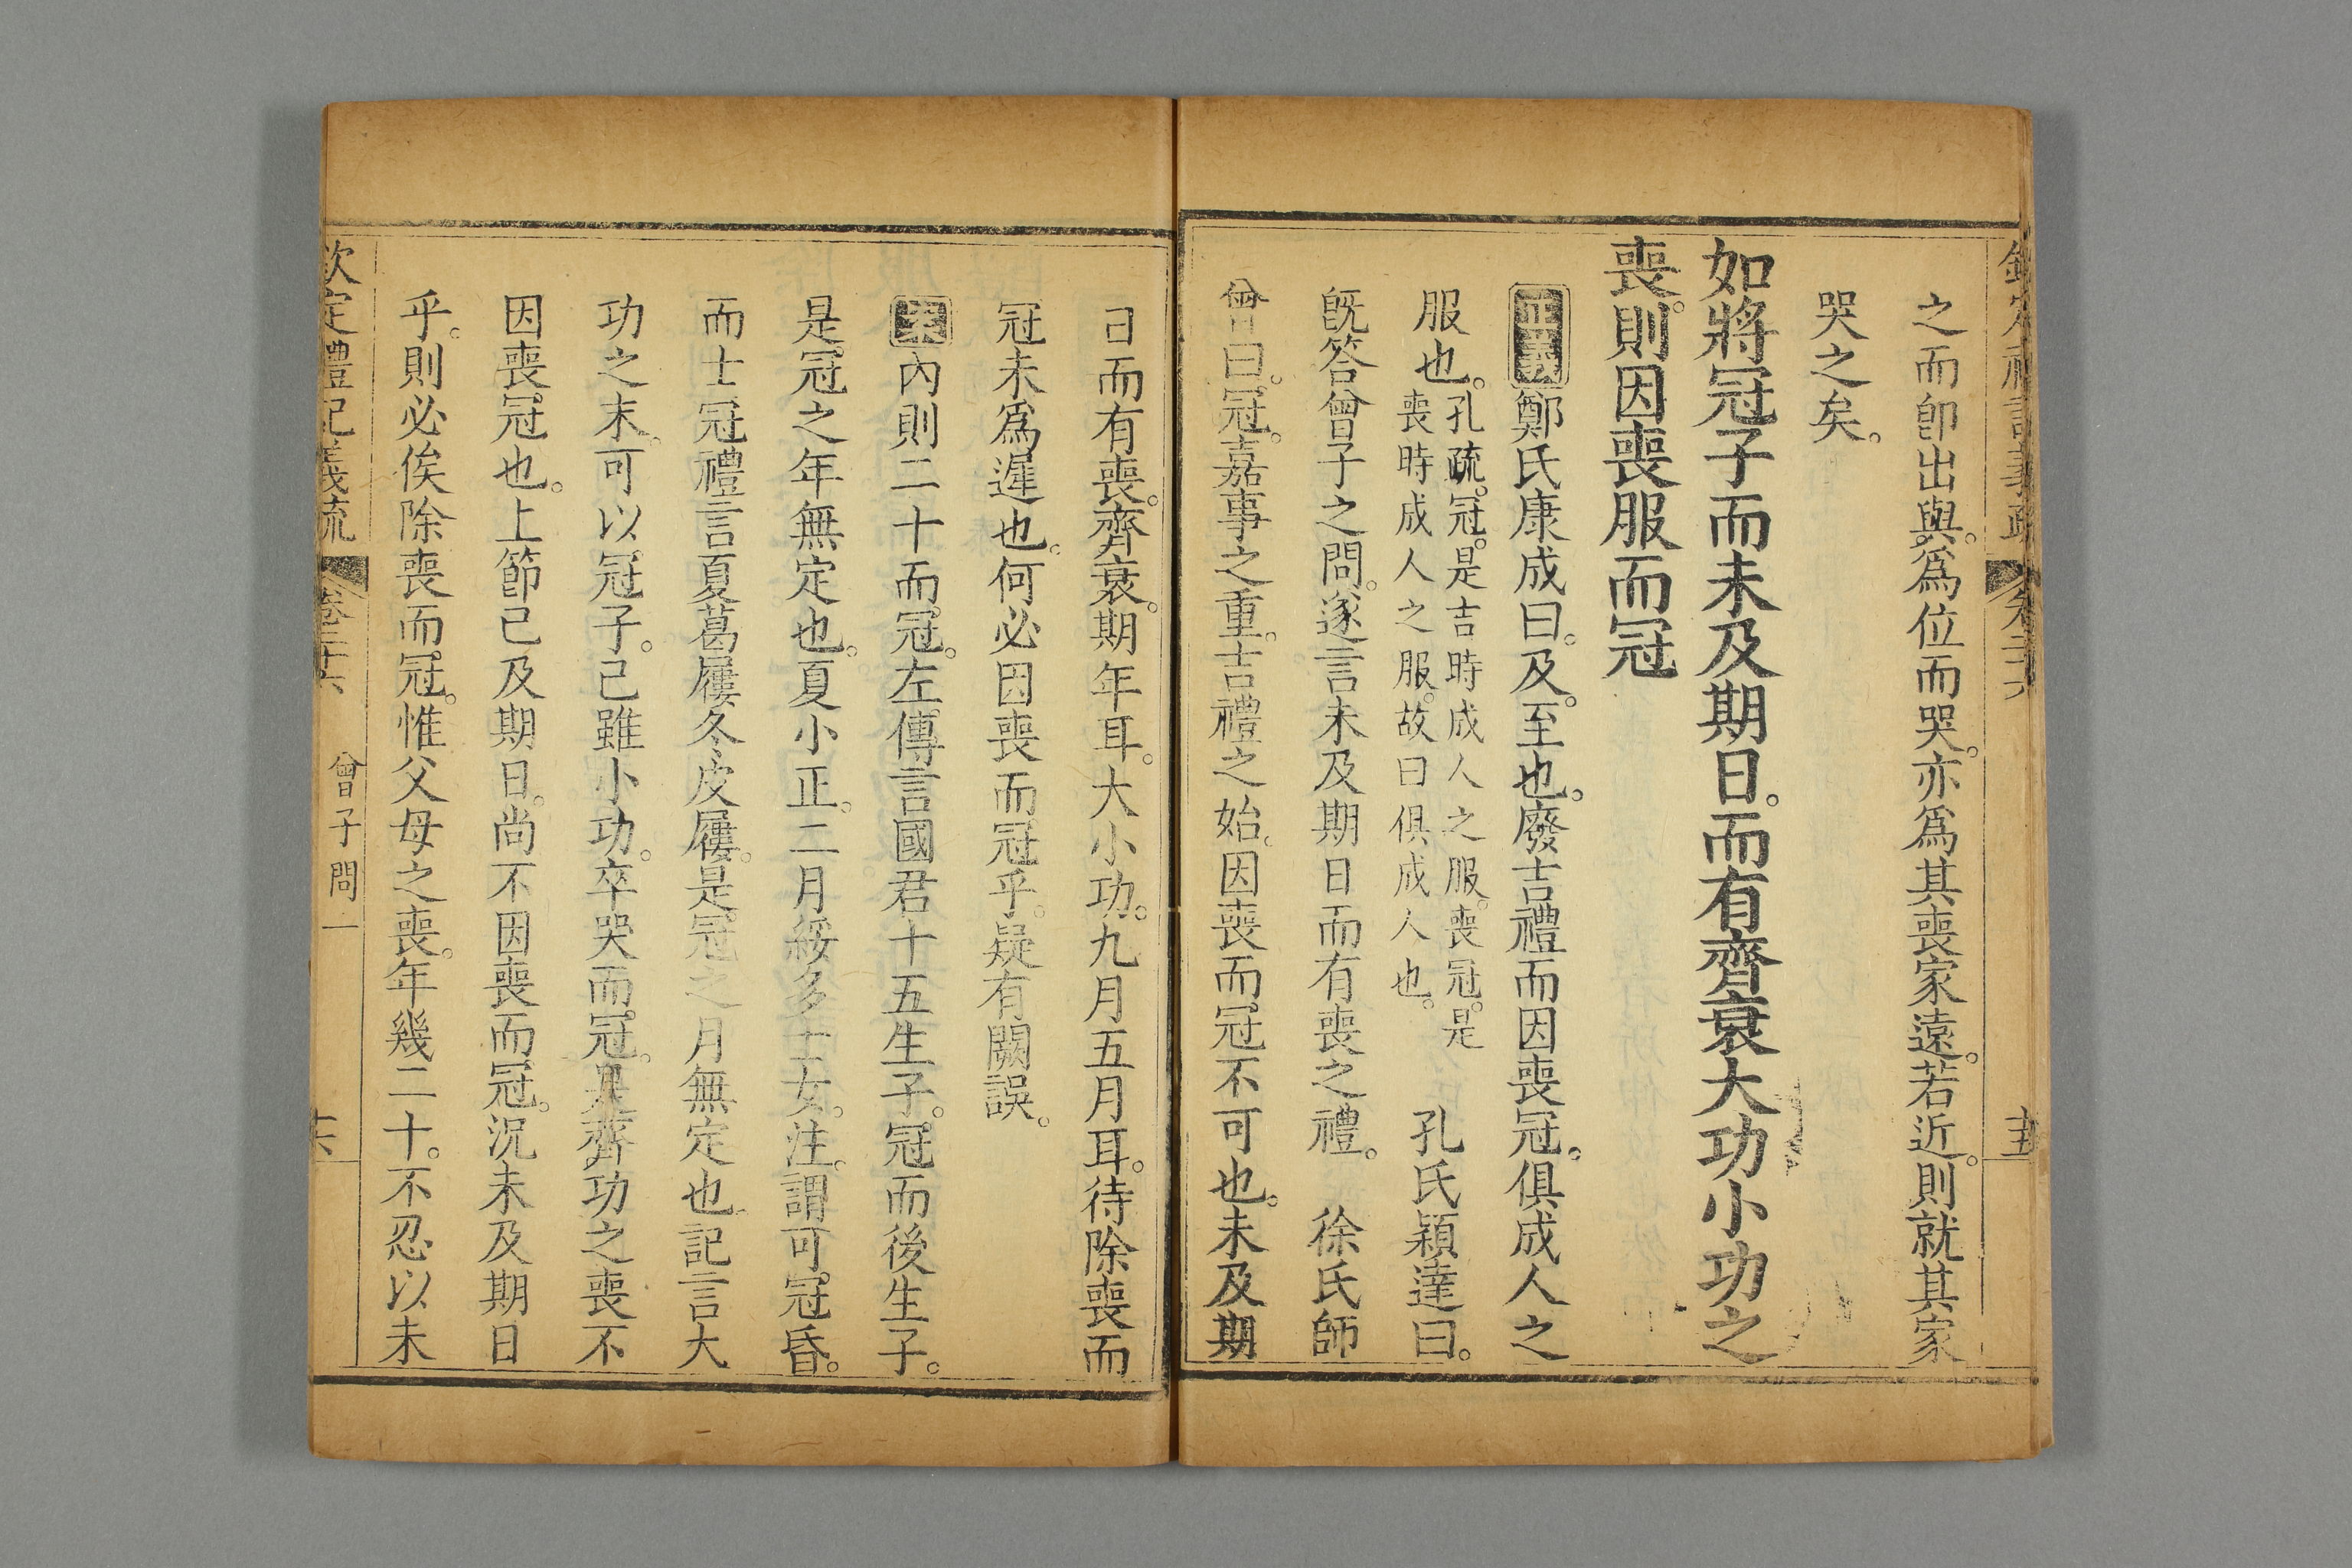 欽定禮記義疏 卷二十六 十五
之而卽出與爲位而哭。亦爲其喪家遠。若近。則就其家
哭之矣。
如將冠子而未及期日。而有齊衰大功小功之
喪。則因喪服而冠
正義鄭氏康成曰。及。至也。廢吉禮而因喪冠。俱成人之
服也。孔疏。冠。是吉時成人之服。喪冠。是
喪時成人之服。故曰俱成人也。 孔氏穎達曰。
旣答曾子之問。遂言未及期日而有喪之禮。 徐氏師
曾曰。冠。嘉事之重。吉禮之始。因喪而冠不可也。未及期
日而有喪。齊衰。期年耳。大小功。九月五月耳。待除喪而
冠未爲遲也。何必因喪而冠乎。疑有闕誤。
案內則二十而冠。左傳言國君十五生子。冠而後生子。
是冠之年無定也。夏小正。二月綏多士女。注。謂可冠昏。
而士冠禮言夏葛屨冬皮屨。是冠之月無定也記言大
功之末。可以冠子。己雖小功。卒哭而冠。是齊功之喪不
因喪冠也。上節已及期日。尚不因喪而冠。況未及期日
乎。則必俟除喪而冠。惟父母之喪。年幾二十。不忍以未
欽定禮記義疏 卷二十六 曾子問一 十六